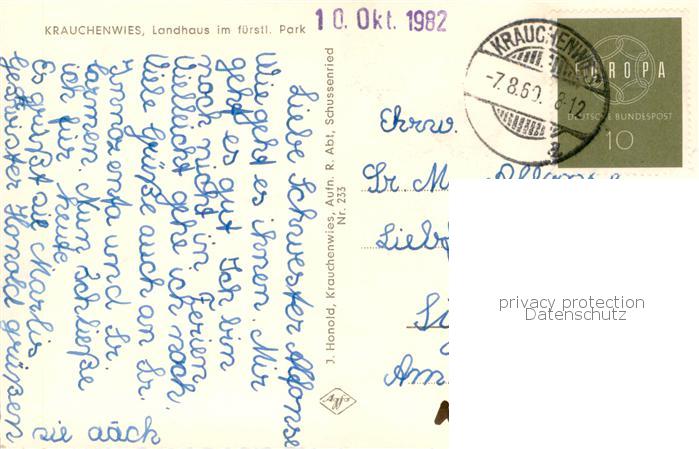 KRAUCHENWIES, Landhaus im fürstl. Park
10. Okt. 1982
KRAUCHENWIES
-7.8.60. 8-12
a
EUROPA
DEUTSCHE BUNDESPOST
10
Liebe Schwester Alfonsa
Wie geht es ihnen. Mir
geht es gut Ich bin
noch nicht in Ferien
vielleicht gehe ich noch.
Viele Grüße auch an Sr.
Innozenta und Sr.
Carmen. Nun schließe
ich für heute
Es grüßt sie Marlis
Geswister Honold grüßen
sie aäck
J. Honold, Krauchenwies, Aufn. R. Abt, Schussenried
Nr. 233
Agfa
Ehrw.
Sr M. Alfonsa
Lieb
Si
Am
privacy protection
Datenschutz